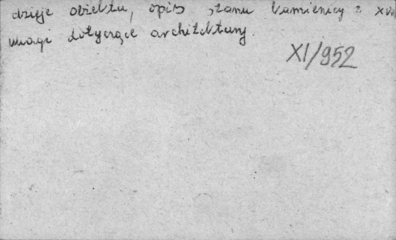 dzieje obiektu, opis stanu kamienicy z XVI
uwagi dotyczące architektury.
XI/952